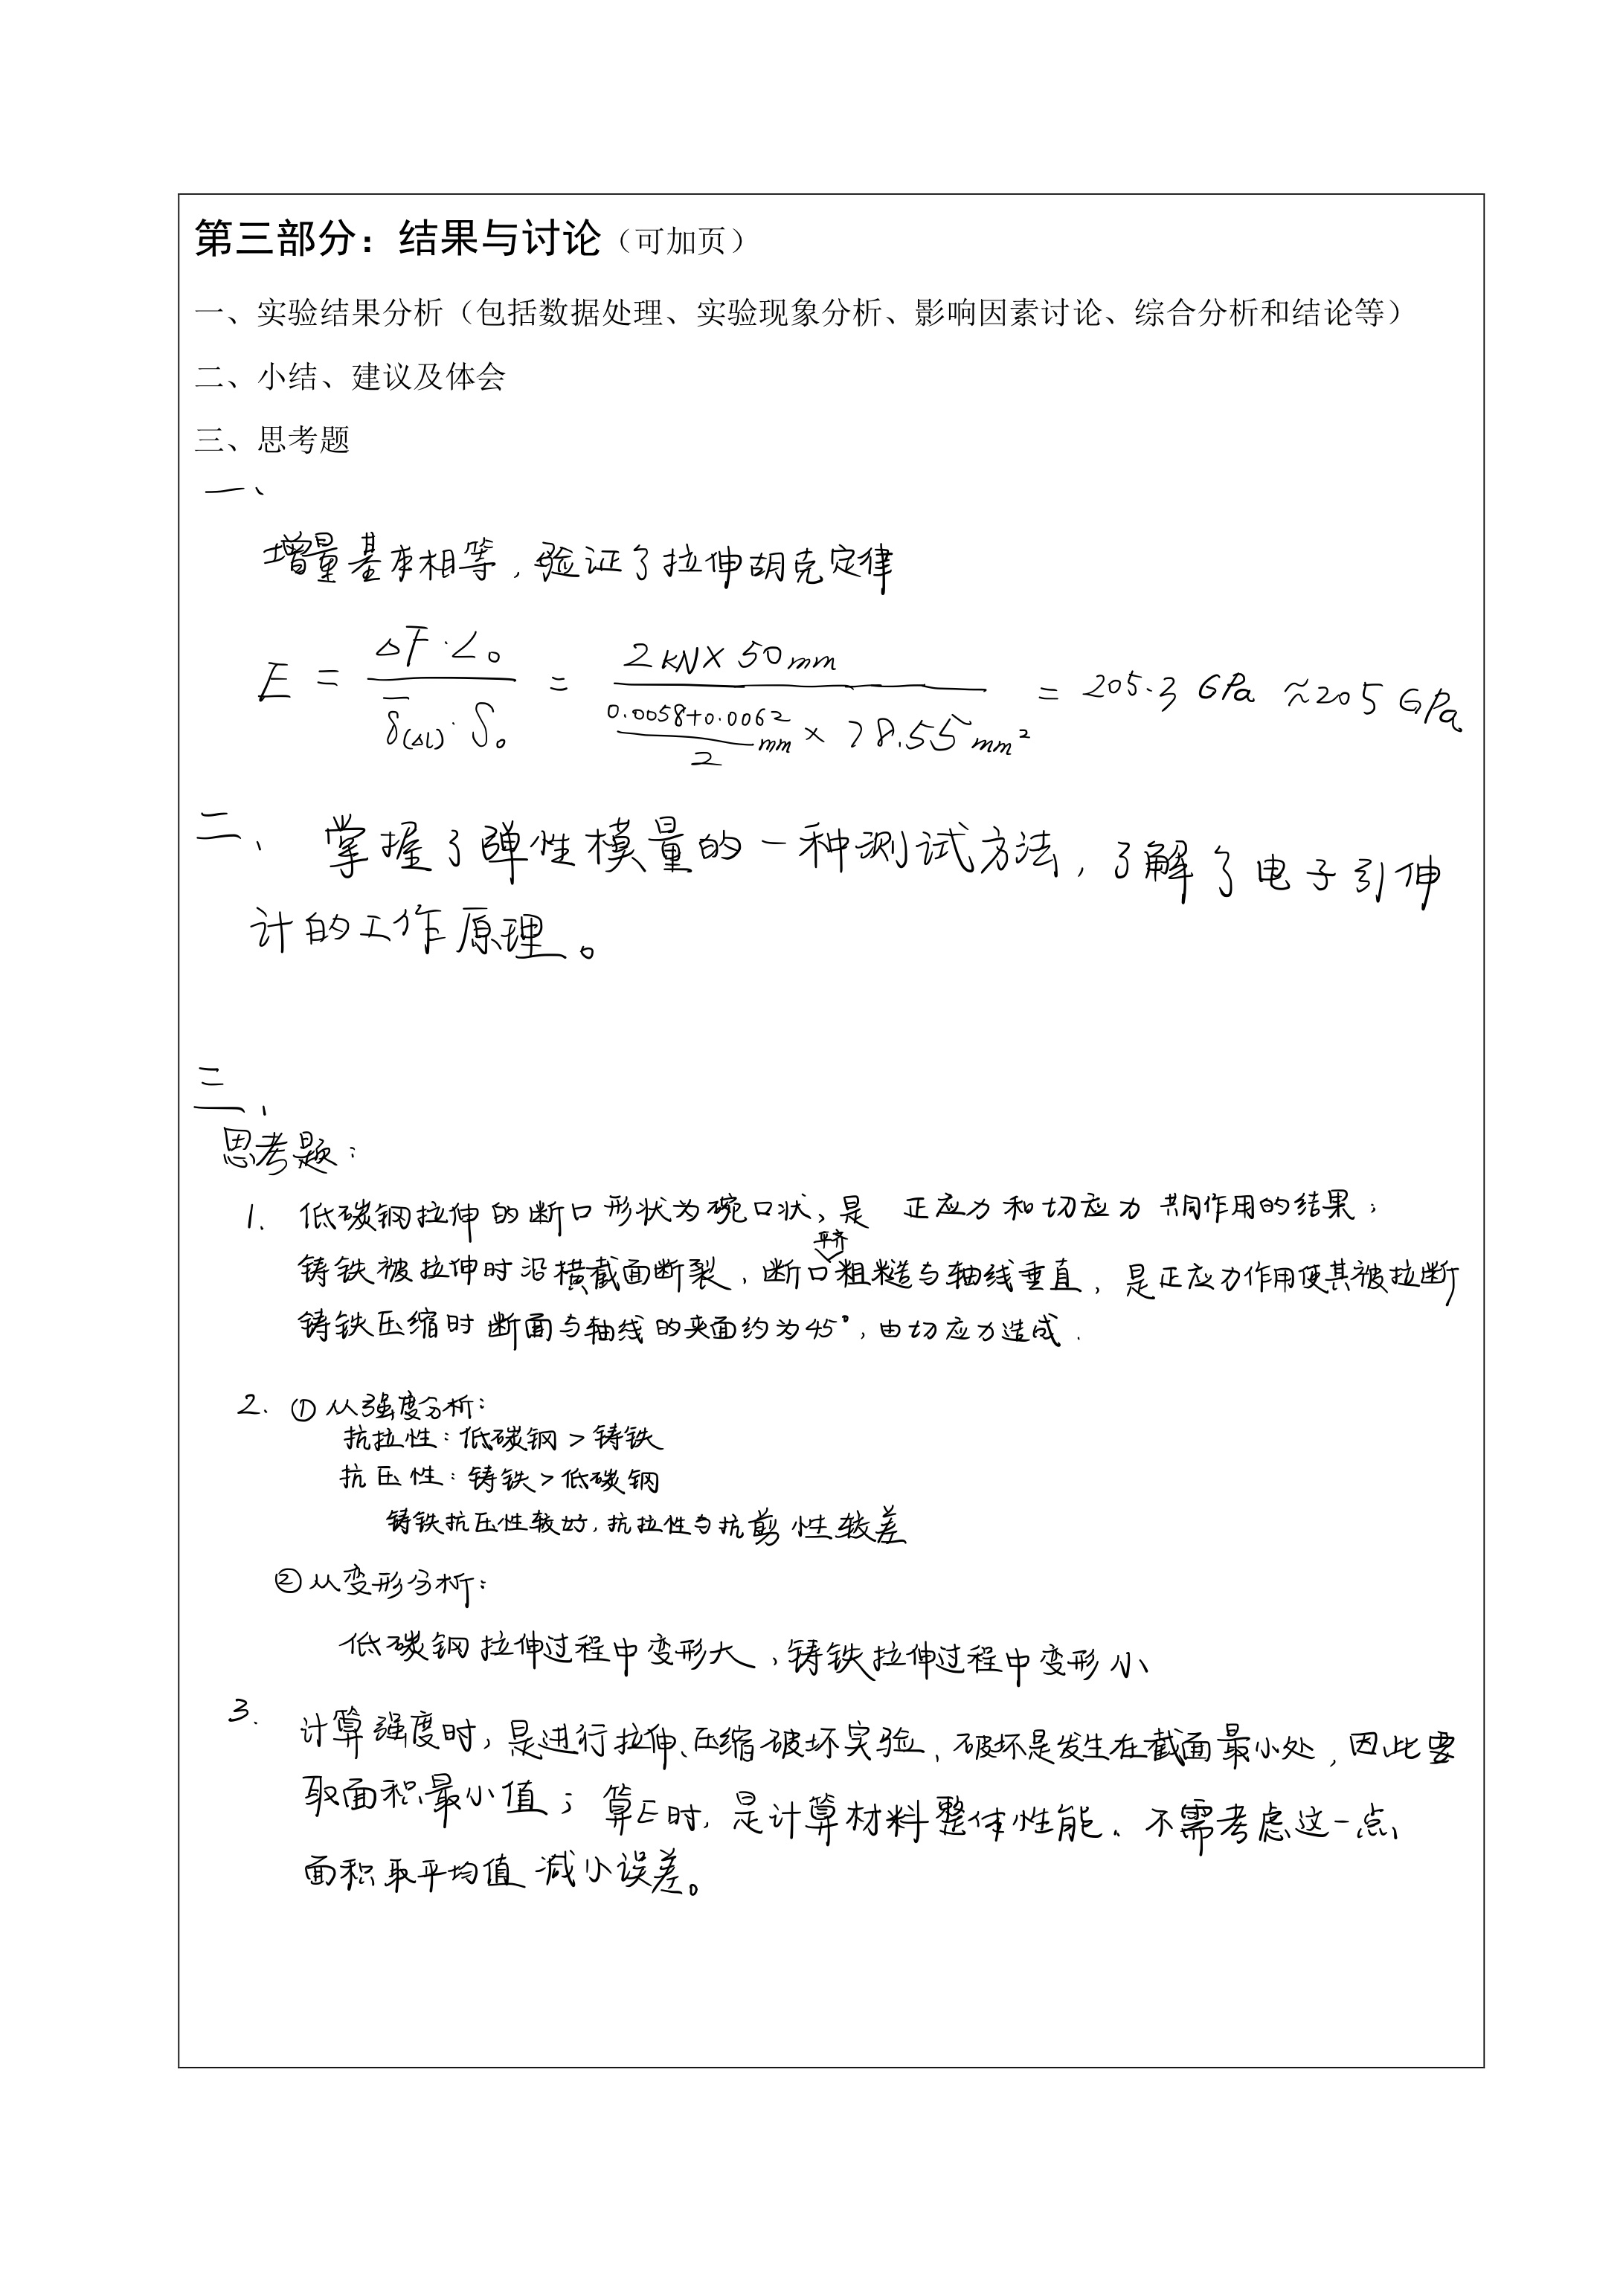 第三部分：结果与讨论（可加页）
一、实验结果分析（包括数据处理、实验现象分析、影响因素讨论、综合分析和结论等）
二、小结、建议及体会
三、思考题
一、
增量基本相等，验证了拉伸胡克定律
E = ΔF·L₀ / (δ̄(ΔL)·S₀) = 2kN×50mm / ((0.0058+0.0062)/2 mm × 78.55mm²) = 205.3 GPa ≈205 GPa
二、掌握了弹性模量的一种测试方法，了解了电子引伸
计的工作原理。
三、
思考题：
1. 低碳钢拉伸的断口形状为碗口状、是 正应力和切应力 共同作用的结果；
平齐
铸铁被拉伸时沿横截面断裂，断口粗糙与轴线垂直，是正应力作用使其被拉断
铸铁压缩时断面与轴线的夹面约为45°，由切应力造成.
2. ①从强度分析：
抗拉性：低碳钢>铸铁
抗压性：铸铁>低碳钢
铸铁抗压性较好，抗拉性与抗剪性较差
②从变形分析：
低碳钢拉伸过程中变形大，铸铁拉伸过程中变形小
3. 计算强度时，是进行拉伸、压缩破坏实验、破坏是发生在截面最小处，因此要
取面积最小值；算E时，是计算材料整体性能、不需考虑这一点、
面积取平均值减小误差。